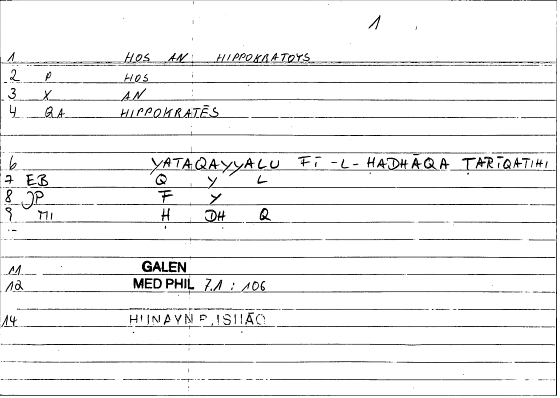 1
1 HOS AN HIPPOKRATOYS
2 P HOS
3 X AN
4 QA HIPPOKRATĒS
6 YATAQAYYALU FĪ -L- HADHĀQA TARĪQATIHI
7 EB Q Y L
8 JP F Y
9 MI H DH Q
11 GALEN
12 MED PHIL 7.1 : 106
14 HUNAYN B. ISHĀQ